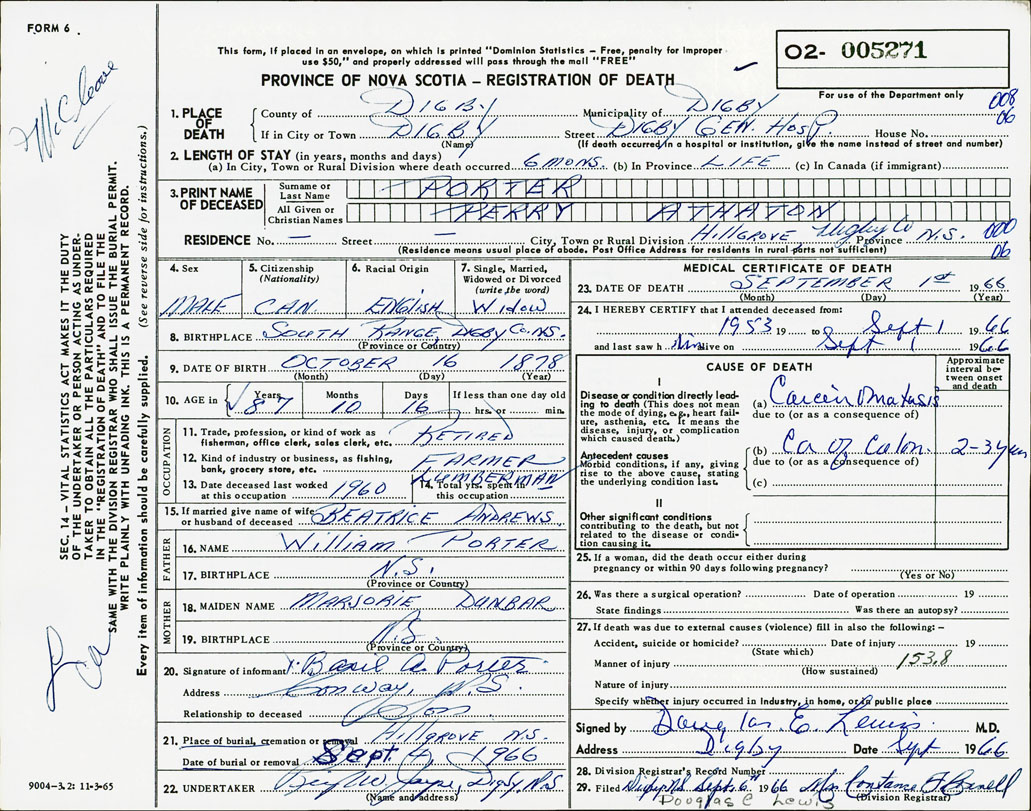 FORM 6
This form, if placed in an envelope, on which is printed "Dominion Statistics – Free, penalty for improper
use $50," and properly addressed will pass through the mail "FREE"
O2- 005271
PROVINCE OF NOVA SCOTIA – REGISTRATION OF DEATH
For use of the Department only
008
06
1. PLACE OF DEATH
County of DIGBY Municipality of DIGBY
If in City or Town DIGBY Street DIGBY GEN. HOSP. House No.
(Name) (If death occurred in a hospital or institution, give the name instead of street and number)
2. LENGTH OF STAY (in years, months and days)
(a) In City, Town or Rural Division where death occurred 6 MONS. (b) In Province LIFE (c) In Canada (if immigrant)
3. PRINT NAME OF DECEASED
Surname or Last Name PORTER
All Given or Christian Names PERRY ATHATON
RESIDENCE No. — Street — City, Town or Rural Division Hillgrove Digby Co Province N.S. 000
06
(Residence means usual place of abode. Post Office Address for residents in rural parts not sufficient)
4. Sex MALE
5. Citizenship (Nationality) CAN.
6. Racial Origin ENGLISH
7. Single, Married, Widowed or Divorced (write the word) WIDOW
8. BIRTHPLACE SOUTH RANGE, DIGBY Co. N.S.
(Province or Country)
9. DATE OF BIRTH OCTOBER 16 1878
(Month) (Day) (Year)
10. AGE in Years 87 Months 10 Days 16 If less than one day old hrs. or min.
OCCUPATION
11. Trade, profession, or kind of work as fisherman, office clerk, sales clerk, etc. RETIRED
12. Kind of industry or business, as fishing, bank, grocery store, etc. FARMER
LUMBERMAN
13. Date deceased last worked at this occupation 1960
14. Total yrs. spent in this occupation
15. If married give name of wife or husband of deceased BEATRICE ANDREWS
FATHER
16. NAME William PORTER
17. BIRTHPLACE N.S.
(Province or Country)
MOTHER
18. MAIDEN NAME MARJORIE DUNBAR
19. BIRTHPLACE N.S.
(Province or Country)
20. Signature of informant Basil A. Porter
Address Conway, N.S.
Relationship to deceased Son
21. Place of burial, cremation or removal Hillgrove N.S.
Date of burial or removal Sept 4, 1966
22. UNDERTAKER Digby N.S
(Name and address)
MEDICAL CERTIFICATE OF DEATH
23. DATE OF DEATH SEPTEMBER 1st 1966
(Month) (Day) (Year)
24. I HEREBY CERTIFY that I attended deceased from:
1953 19 to Sept 1 1966
and last saw h im alive on Sept 1 1966
CAUSE OF DEATH
Approximate interval between onset and death
I
Disease or condition directly leading to death (This does not mean the mode of dying, e.g., heart failure, asthenia, etc. It means the disease, injury, or complication which caused death.)
(a) Carcinomatosis
due to (or as a consequence of)
Antecedent causes
Morbid conditions, if any, giving rise to the above cause, stating the underlying condition last.
(b) Ca of Colon. 2-3 years
due to (or as a consequence of)
(c)
II
Other significant conditions contributing to the death, but not related to the disease or condition causing it.
25. If a woman, did the death occur either during pregnancy or within 90 days following pregnancy?
(Yes or No)
26. Was there a surgical operation? Date of operation 19
State findings Was there an autopsy?
27. If death was due to external causes (violence) fill in also the following: –
Accident, suicide or homicide? Date of injury 19
(State which)
Manner of injury 153.8
(How sustained)
Nature of injury
Specify whether injury occurred in Industry, in home, or in public place
Signed by Douglas E. Lewis M.D.
Address Digby Date Sept 1966
28. Division Registrar's Record Number
29. Filed Digby NS Sept. 6 1966 Mrs Constance
(Division Registrar)
Douglas E Lewis
SEC. 14 – VITAL STATISTICS ACT MAKES IT THE DUTY
OF THE UNDERTAKER OR PERSON ACTING AS UNDER-
TAKER TO OBTAIN ALL THE PARTICULARS REQUIRED
IN THE "REGISTRATION OF DEATH" AND TO FILE THE
SAME WITH THE DIVISION REGISTRAR WHO SHALL ISSUE THE BURIAL PERMIT.
WRITE PLAINLY WITH UNFADING INK. THIS IS A PERMANENT RECORD.
Every item of information should be carefully supplied. (See reverse side for instructions.)
9004–3.2: 11-3-65